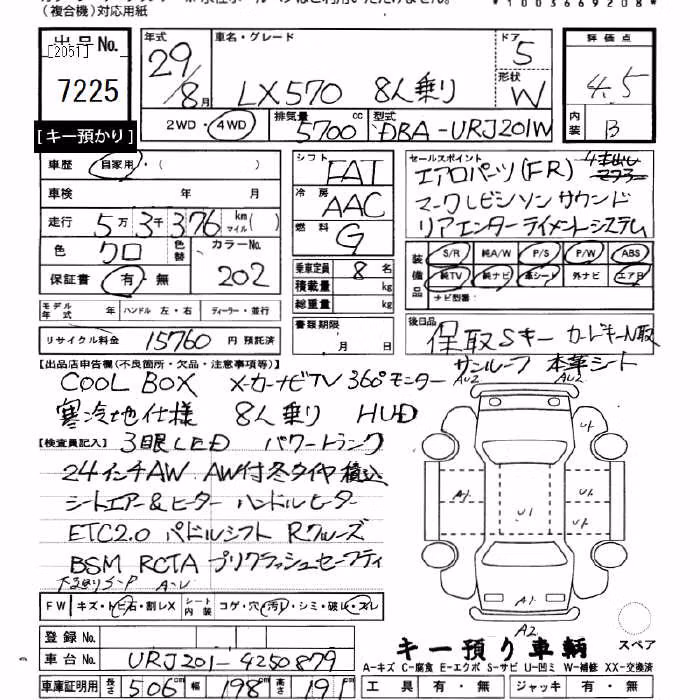 (複合機)対応用紙
*1003669208*
出品No.
[2051]
7225
[キー預かり]
年式
29/8月
車名・グレード
LX570 8人乗り
ドア
5
形状
W
評価点
4.5
内装
B
2WD・4WD
排気量
5700cc
型式
DBA-URJ201W
車歴 自家用・( )
車検 年 月
走行 5万3千376km マイル( )
色 クロ 色替 カラーNo. 202
保証書 有・無
シフト FAT
冷房 AAC
燃料 G
乗車定員 8名
積載量 kg
総重量 kg
セールスポイント
エアロパーツ(FR) 4本出し
マークレビンソンサウンド
リアエンターテイメントシステム
装備品
S/R 純A/W P/S P/W ABS
純TV 純ナビ 革シート 外ナビ エアB
ナビ型番:
モデル年式 年 ハンドル 左・右 ディーラー・並行
リサイクル料金 15760円 預託済
書類期限 月 日
後日品
保取Sキー カードキーN取
[出品店申告欄(不良箇所・欠品・注意事項等)]
サンルーフ 本革シート
COOL BOX メーカーナビTV 360°モニター
寒冷地仕様 8人乗り HUD
[検査員記入]
3眼LED パワートランク
24インチAW AW付冬タイヤ積込
シートエアー&ヒーター ハンドルヒーター
ETC2.0 パドルシフト Rクルーズ
BSM RCTA プリクラッシュセーフティ
AU2 AU2
U1
A1 U1 U1
U1
A1
A2
FW キズ・ヒ石・割レX シート内装 コゲ・穴・汚レ・シミ・破レ・スレ
登録No.
車台No. URJ201-4250879
車庫証明用 長さ 506cm 幅 198cm 高さ 191cm
キー預り車輌
スペア
A-キズ C-腐食 E-エクボ S-サビ U-凹ミ W-補修 XX-交換済
工具 有・無 ジャッキ 有・無